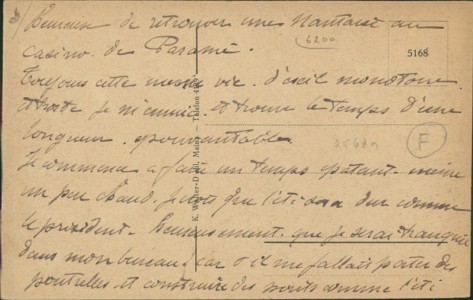 3) Heureux de retrouver une Nantaise au
casino de Paramé.
6200
5168
Toujours cette même vie d'exil monotone
et triste je m'ennuie et trouve le temps d'une
longueur épouvantable.
F
Je commence a faire un temps epatant meme
un peu chaud. Je crois que l'été sera dur comme
le président. Heureusement que je serai tranquille
dans mon bureau car s'il me fallait porter des
poutrelles et construire des ponts comme l'été